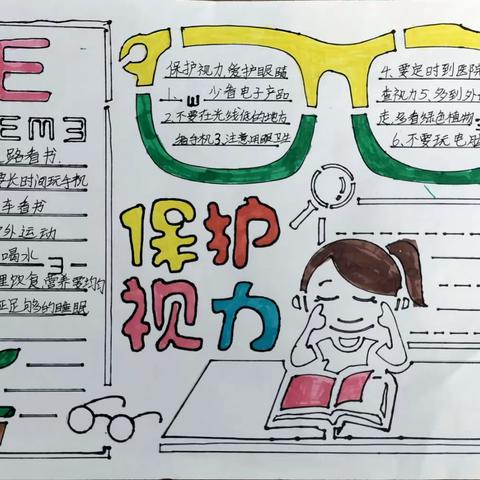 E
E m 3
路看书.
长时间玩手机
车看书
外运动
喝水
理饮食,营养要均匀
证足够的睡眠
保护视力,爱护眼睛
1、少看电子产品
2.不要在光线低的地方
看手机3、注意用眼卫生
4.要定时到医院
查视力5、多到外
走,多看绿色植物
6、不要玩电
保护
视力